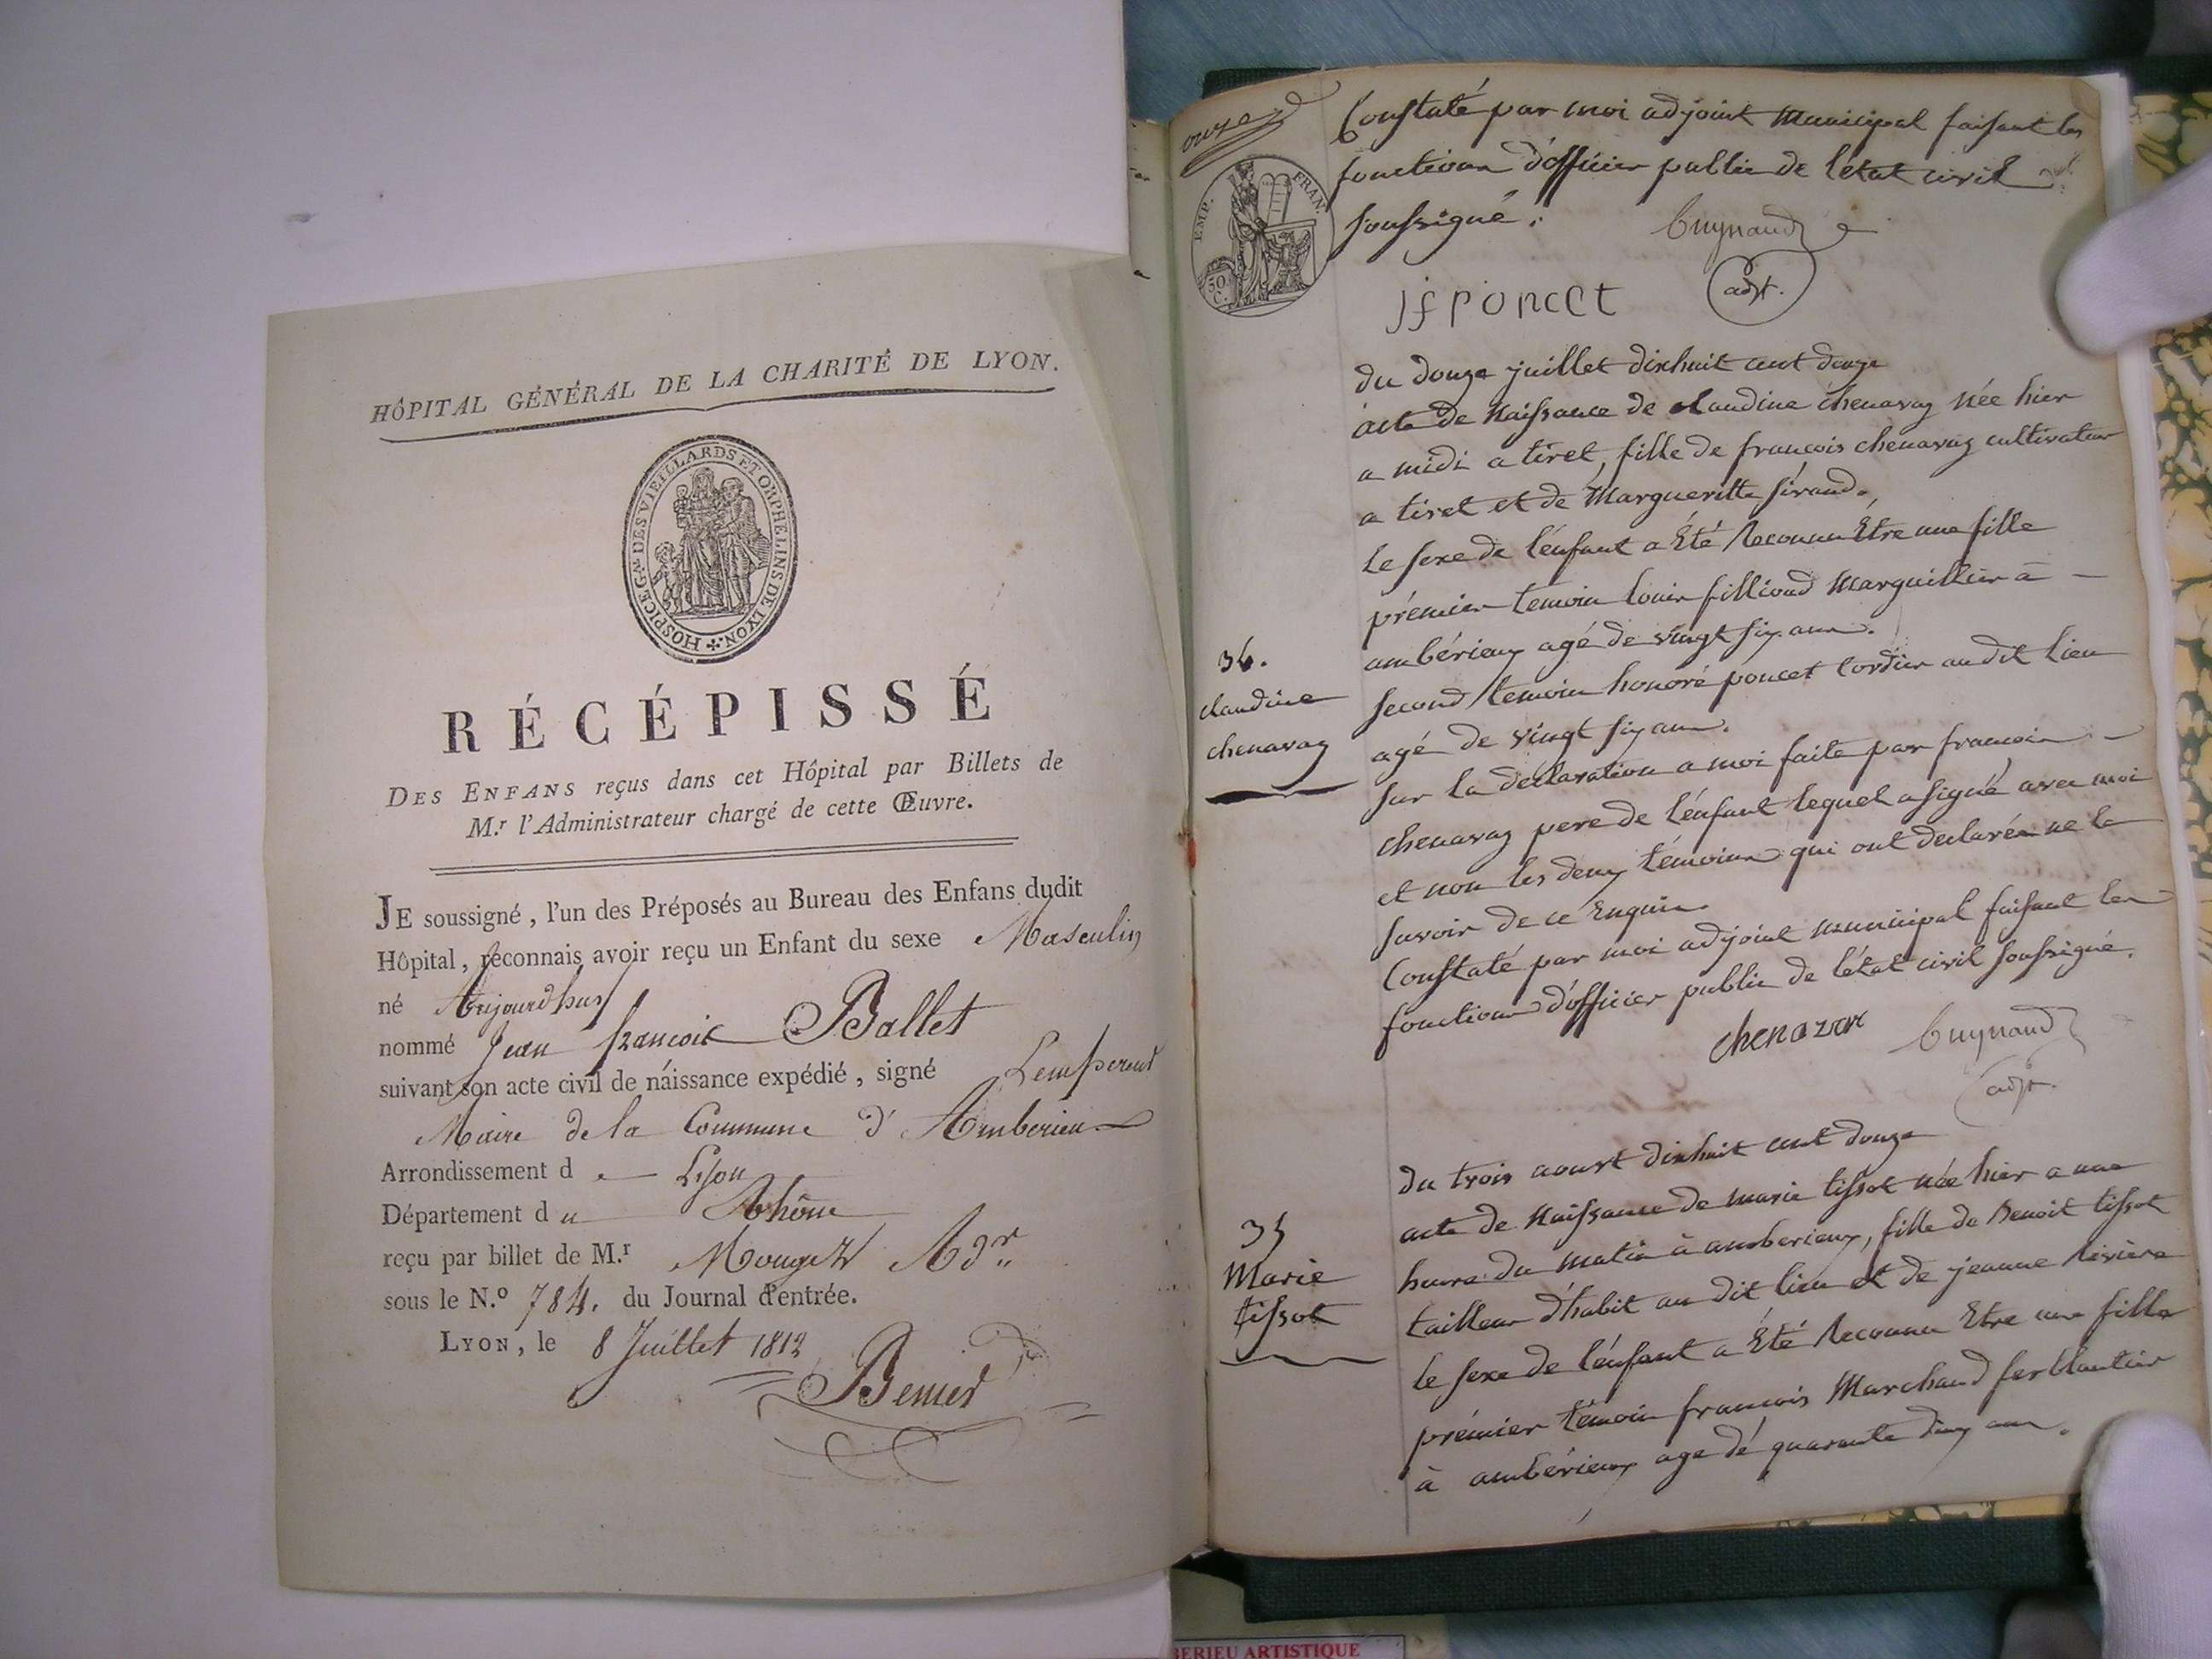 HÔPITAL GÉNÉRAL DE LA CHARITÉ DE LYON.
HOSPICE G.AL DES VIEILLARDS ET ORPHELINS DE LYON
RÉCÉPISSÉ
DES ENFANS reçus dans cet Hôpital par Billets de
M.r l'Administrateur chargé de cette Œuvre.
JE soussigné, l'un des Préposés au Bureau des Enfans dudit
Hôpital, reconnais avoir reçu un Enfant du sexe Masculin
né Aujourdhuy
nommé Jean françois Ballet
suivant son acte civil de naissance expédié, signé Lempereur
Maire de la Commune d'Amberieux
Arrondissement de Lyon
Département du Rhône
reçu par billet de M.r Mouget Adr
sous le N.o 784. du Journal d'entrée.
LYON, le 8 Juillet 1812
Benier
onze
EMP. FRAN.
50 C.
Constaté par moi adjoint Municipal faisant les
fonctions d'officier public de létat civil
soussigné.
Cuynaud
adjt.
jf poncet
du douze juillet dixhuit cent douze
acte de Naissance de claudine chenavaz née hier
a midi a tiret, fille de françois chenavaz cultivateur
a tiret et de Margueritte sirand.
Le sexe de lénfant a Été Reconnu Être une fille
prémier temoin Louis fillioud Marguillier à
ambérieux agé de vingt six ans.
second temoin honoré poncet Cordier au dit Lieu
agé de vingt six ans.
sur la declaration a moi faite par francois
chenavaz pere de lénfant lequel a signé avec moi
et non les deux témoins qui ont declarés ne le
savoir de ce Enquis.
Constaté par moi adjoint municipal faisant les
fonctions d'officier public de létat civil soussigné.
chenavax Cuynaud
adjt.
34.
claudine
chenavaz
du trois aoust dixhuit cent douze
acte de Naissance de marie tissot née hier a une
heure du matin à amberieux, fille de Benoit tissot
tailleur d'habit au dit lieu et de jeanne Riviere
le sexe de lénfant a Été Reconnu Etre une fille
prémier témoin francois Marchand ferblantier
à ambérieux age dé quarante deux ans.
35
Marie
tissot
BERIEU ARTISTIQUE